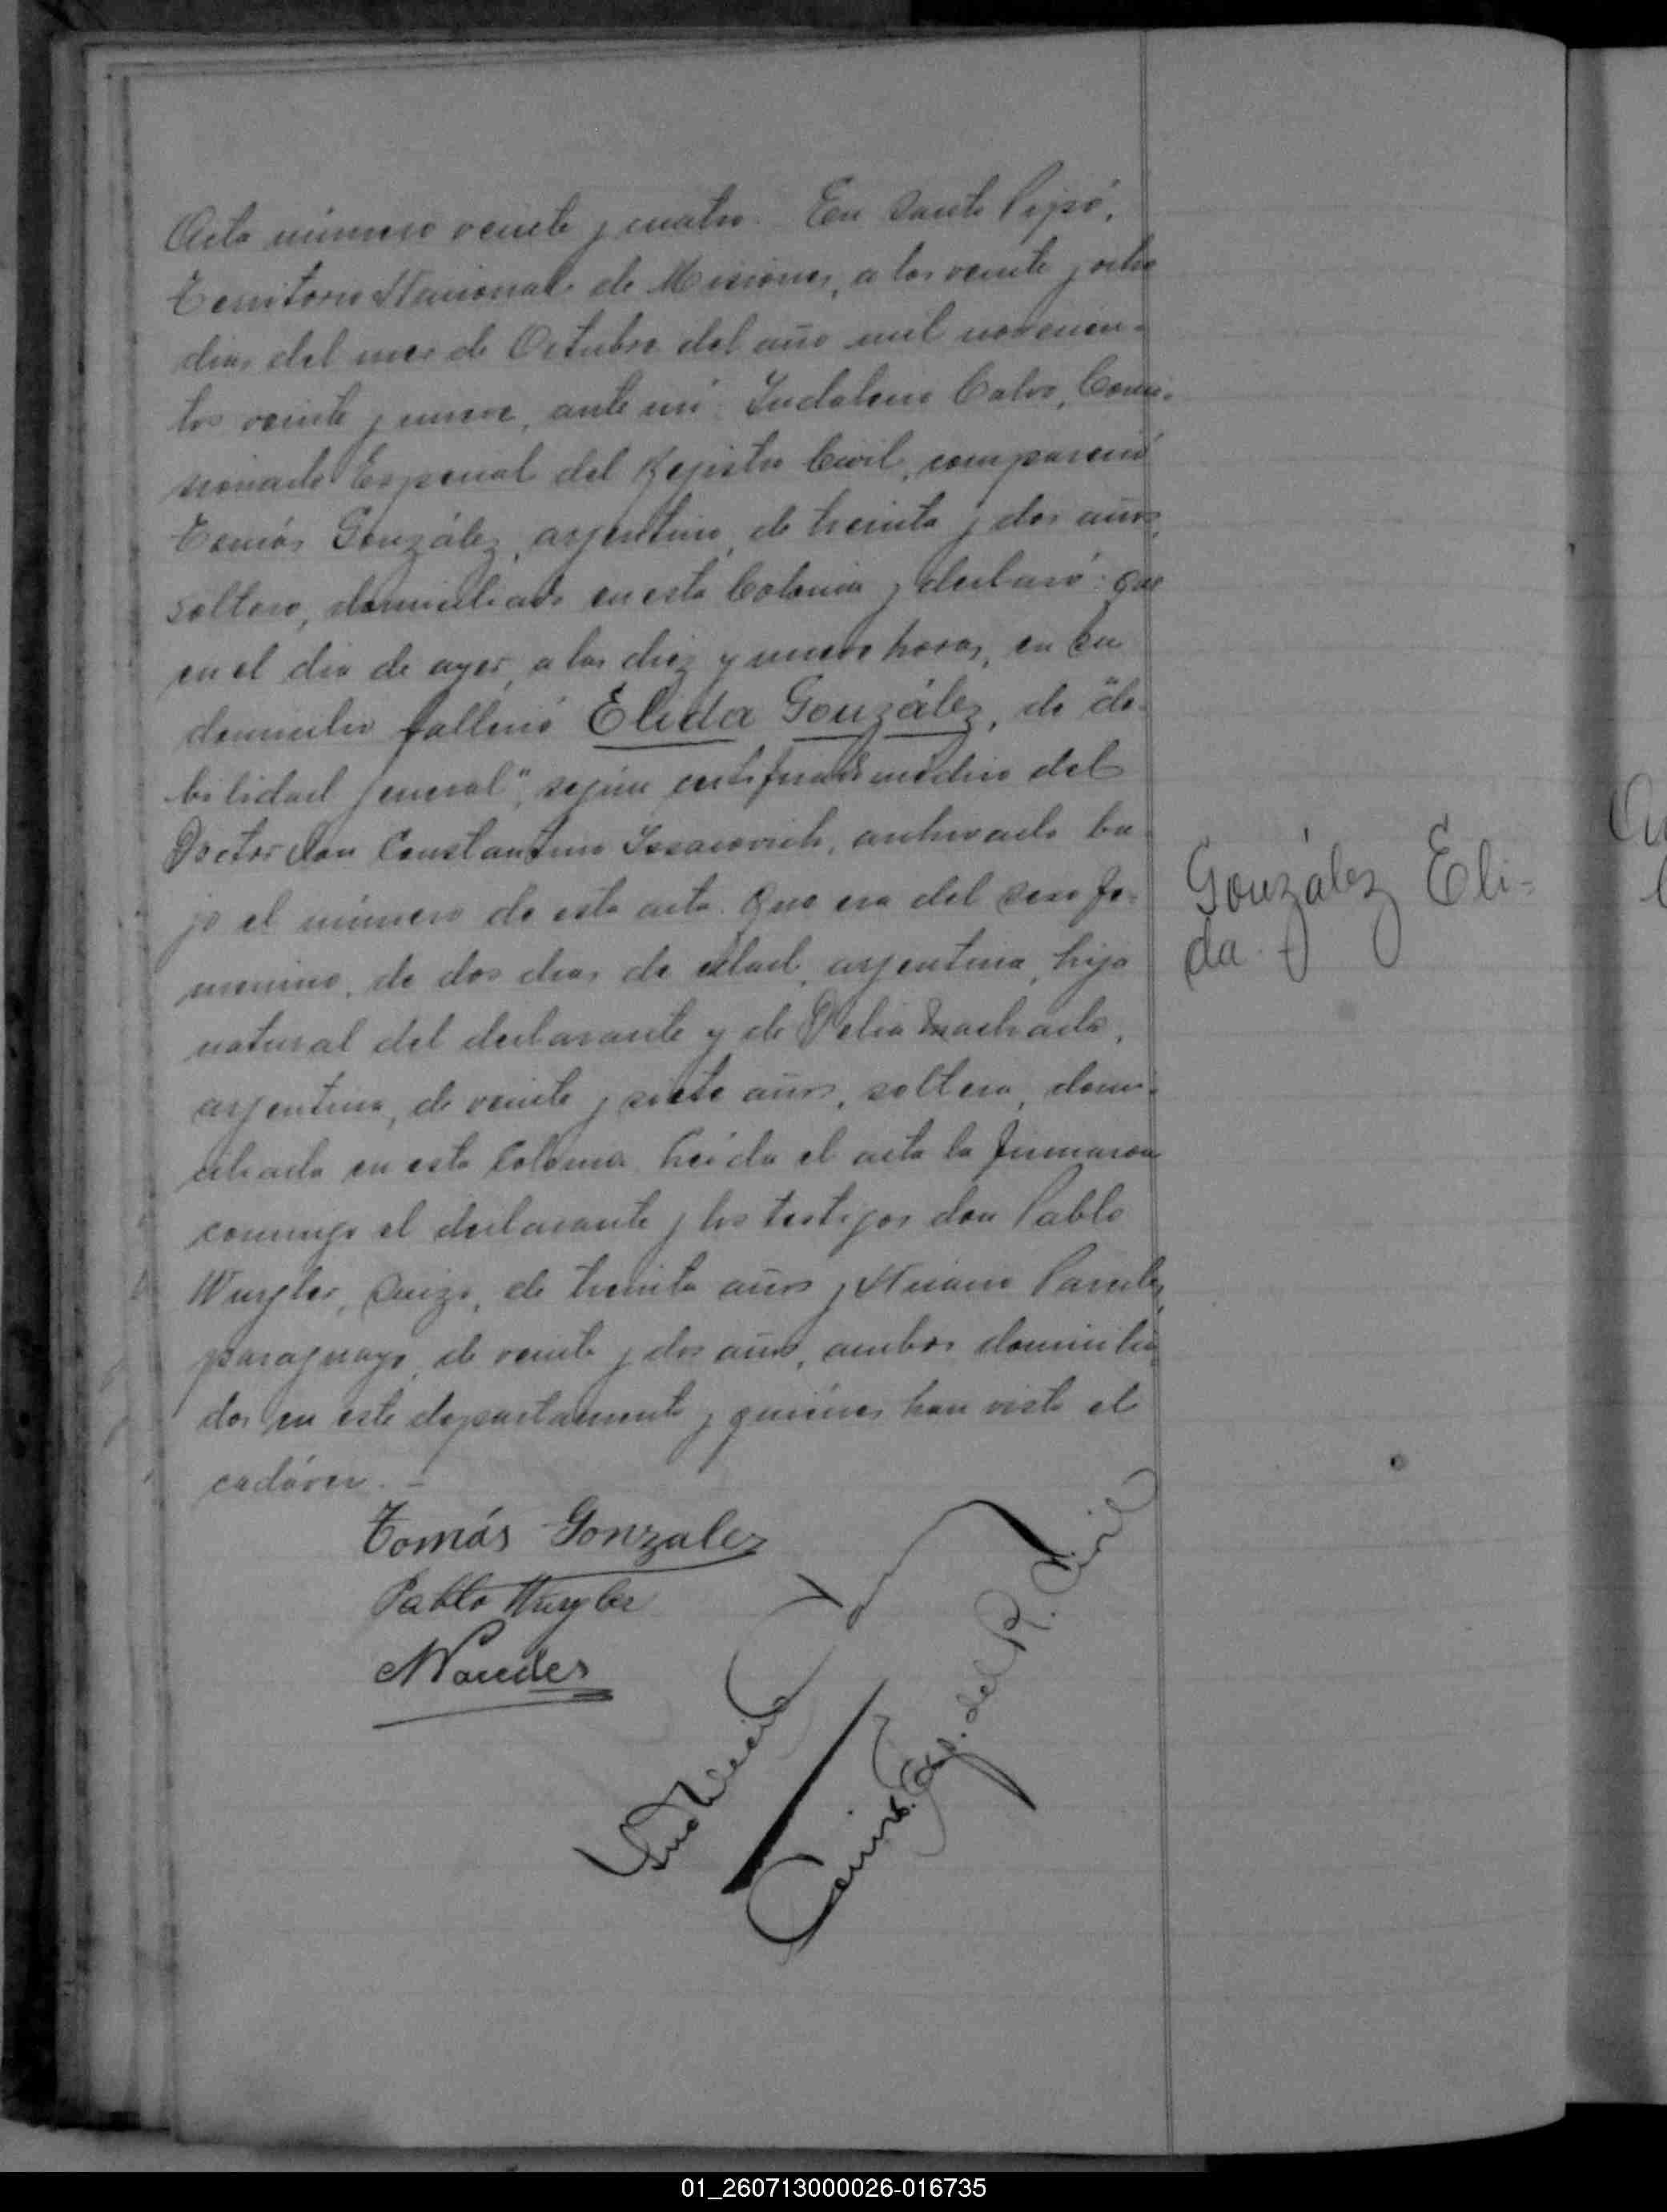 Acta número veinte y cuatro. En Santo Pipó,
Territorio Nacional de Misiones, a los veinte y ocho
dias del mes de Octubre del año mil novecien-
tos veinte y nueve, ante mi: Indalecio Calvo, Comi-
sionado Especial del Rejistro Civil, compareció
Tomás González, arjentino, de treinta y dos años,
soltero, domiciliado en esta Colonia y declaró: que
en el dia de ayer, a las diez y nueve horas, en su
domicilio falleció Élida González, de "de-
bilidad jeneral", según certificado médico del
Doctor don Constantino archivado ba-
jo el número de esta acta. Que era del sexo fe-
menino, de dos dias de edad, arjentina, hija
natural del declarante y de Delia Machado,
arjentina, de veinte y siete años, soltera, domi-
ciliada en esta Colonia. Leída el acta la firmaron
conmigo el declarante y los testigos don Pablo
Wurgler, Suizo, de treinta años y
paraguayo, de veinte y dos años, ambos domicilia-
dos en este departamento y quiénes han visto el
cadáver. -
González Éli-
da.
Tomás Gonzalez
Pablo Wurgler
Indalecio
Comis. Esp. del R. Civil
01_260713000026-016735